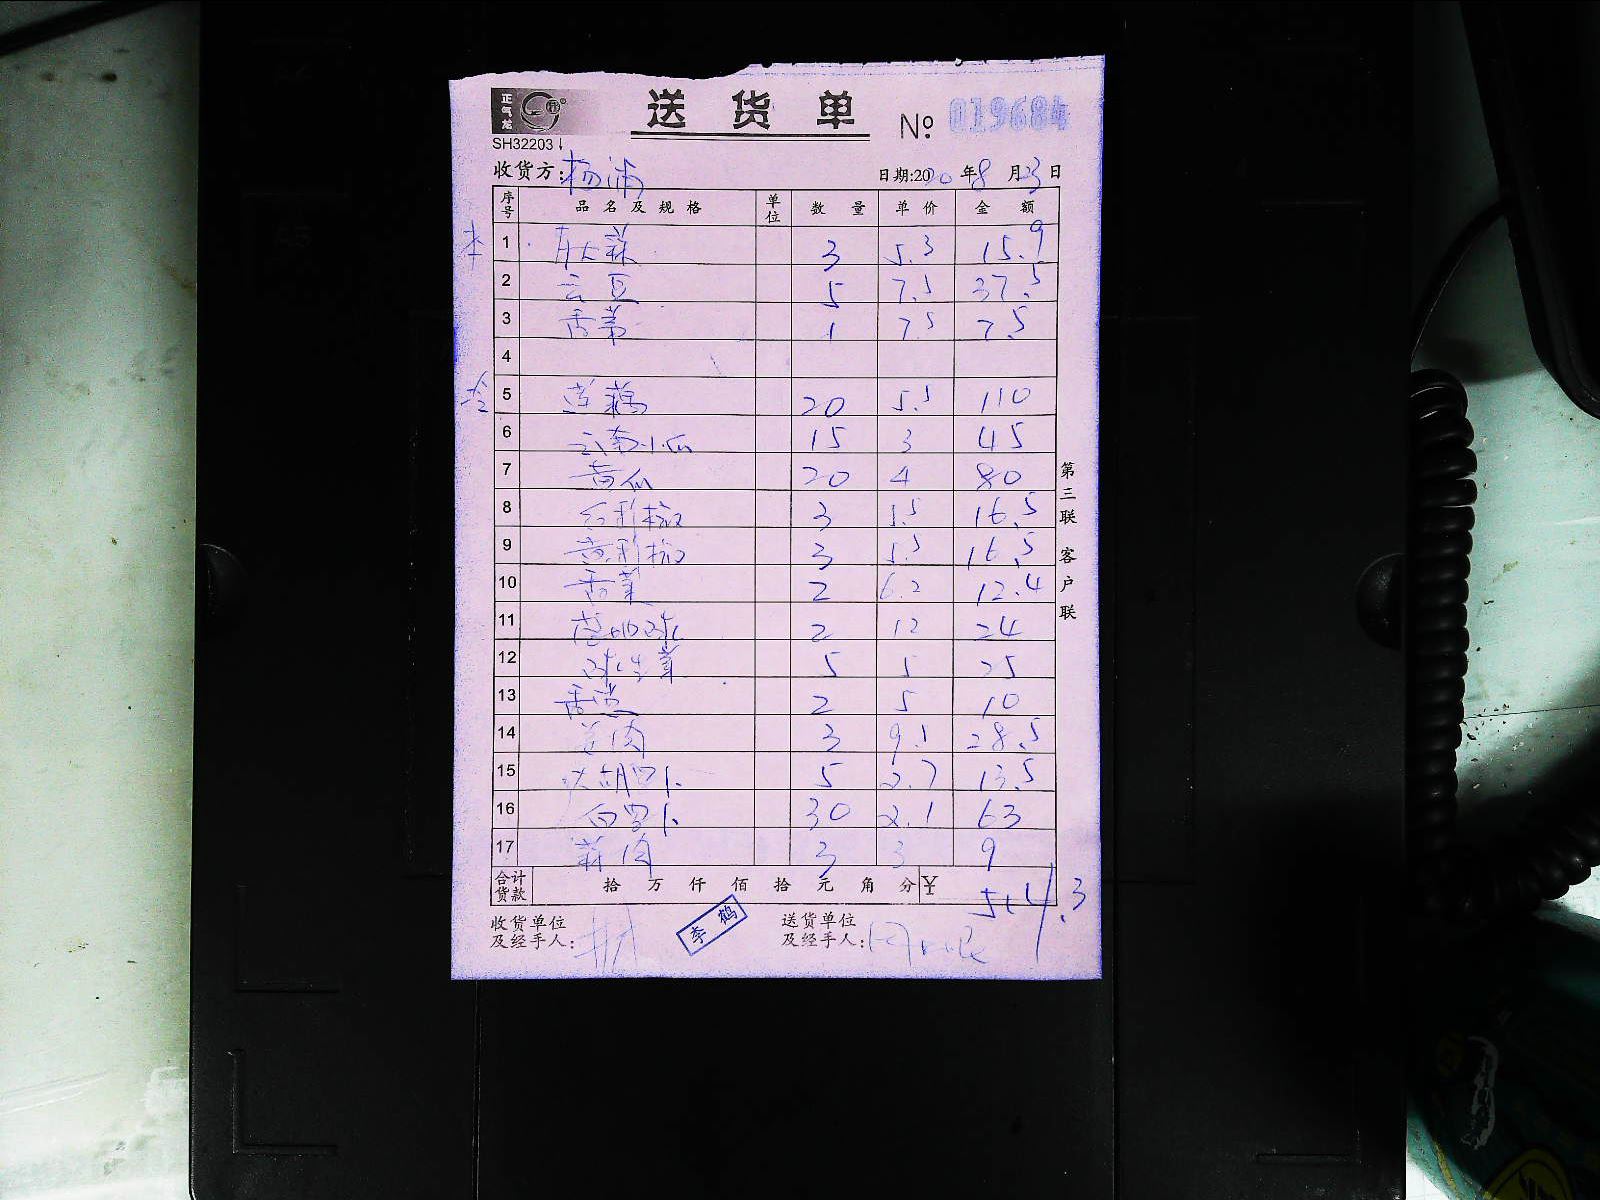 正气龙
送货单 No. 019684
SH32203
收货方: 杨浦 日期:2020年8月23日
序号 品名及规格 单位 数量 单价 金额
本 1 大蒜 3 5.3 15.9
2 云豆 5 7.5 37.5
3 香葱 1 7.5 7.5
4
冷 5 莲藕 20 5.5 110
6 云南小瓜 15 3 45
7 黄瓜 20 4 80
8 红彩椒 3 5.5 16.5
9 黄彩椒 3 5.5 16.5
10 香菜 2 6.2 12.4
11 2 12 24
12 球生菜 5 5 25
13 香 2 5 10
14 肉 3 9.5 28.5
15 胡罗卜 5 2.7 13.5
16 白罗卜 30 2.1 63
17 蒜肉 3 3 9
合计货款 拾万仟佰拾元角分 ¥ 514.3
收货单位及经手人: 李鹤 送货单位及经手人:
第三联 客户联